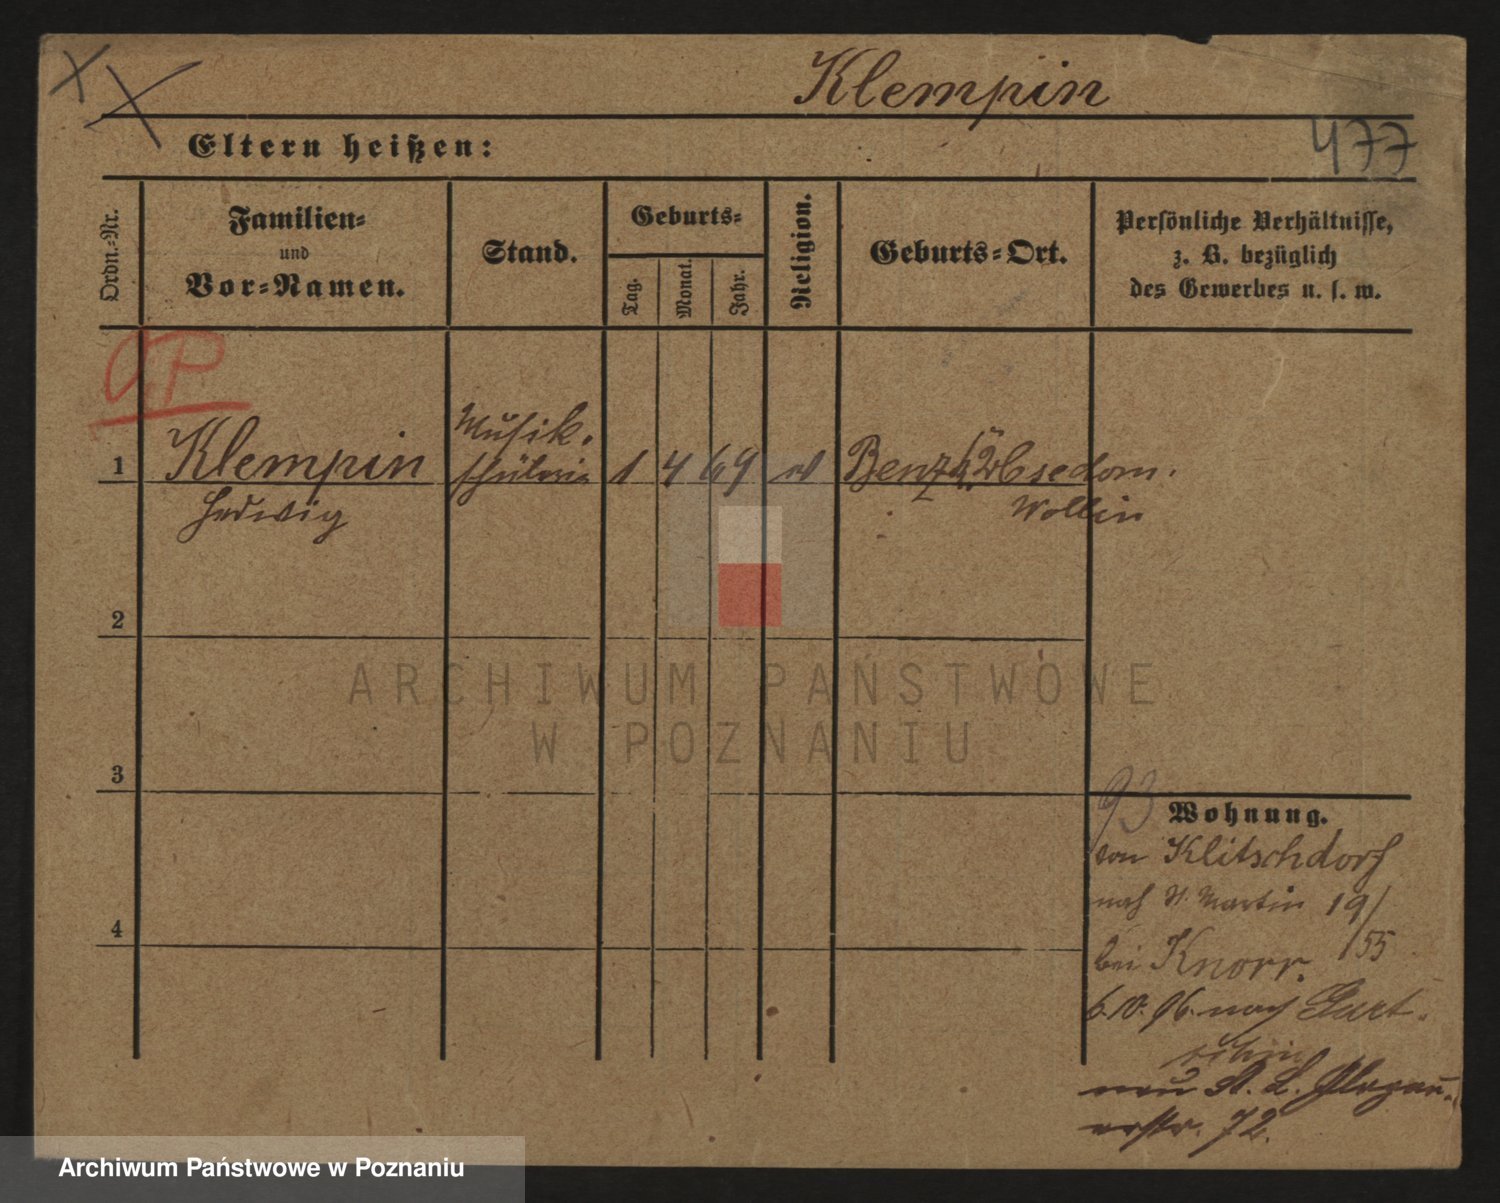 Klempin
Eltern heißen:
477
Ordn.-Nr.
Familien-
und
Vor-Namen.
Stand.
Geburts-
Tag.
Monat.
Jahr.
Religion.
Geburts-Ort.
Persönliche Verhältnisse,
z. B. bezüglich
des Gewerbes u. s. w.
GP
Musik.
1 Klempin schülerin 1 4 69 Benz
Hedwig Wollin
2
ARCHIWUM PAŃSTWOWE
W POZNANIU
3
93 Wohnung.
von Klitschdorf
nach St. Martin 19/
4
bei Knorr. 55
6.10.96. nach
72.
Archiwum Państwowe w Poznaniu